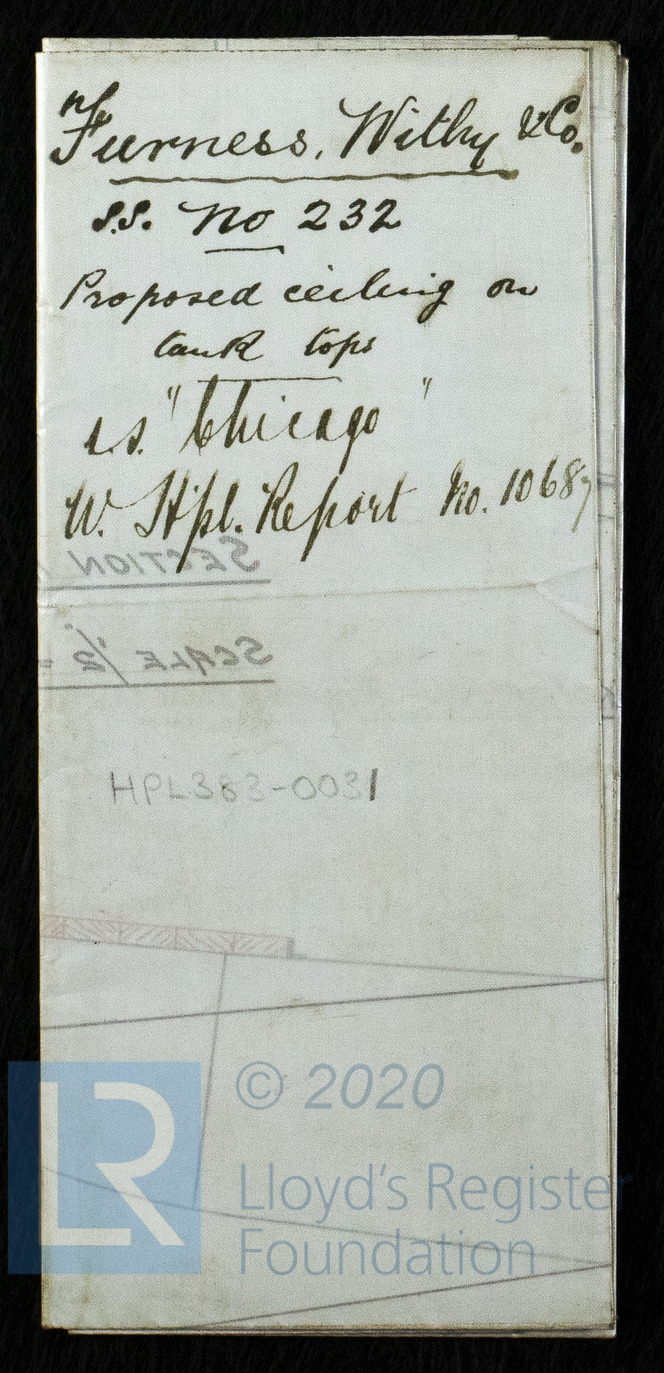 Furness, Withy & Co.
S.S. No 232
Proposed ceiling on
tank tops
s.s. "Chicago"
W. Hpl. Report No. 10687
SECTION
SCALE 1/2" =
HPL383-0031
LR
© 2020
Lloyd's Register
Foundation